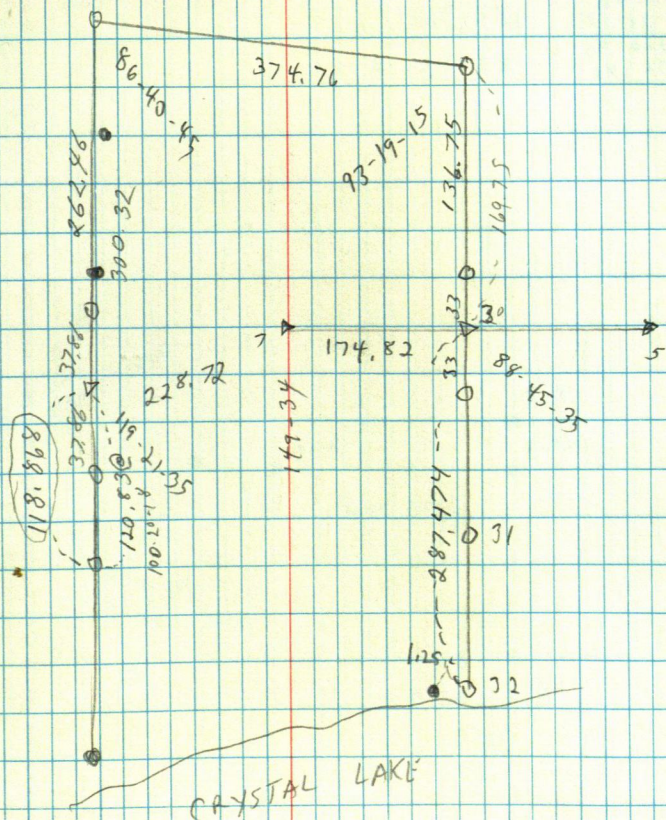 374.76
86-40-45
93-19-15
136.75
169.75
262.46
300.32
33
30
7
174.82
5
33
88-45-35
37.86
228.72
149-34
37.86
119-21-35
118.868
120.83@
100-20-18
287.474
31
1.25
32
CRYSTAL LAKE